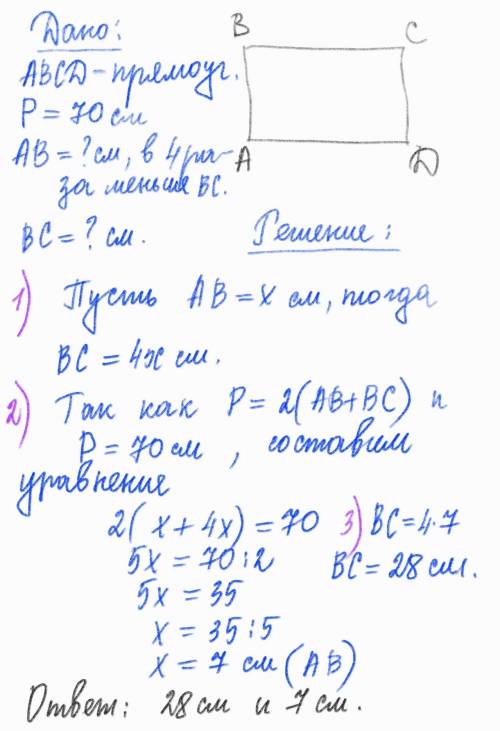 Дано:
B C
ABCD - прямоуг.
P = 70 см
AB = ? см, в 4 ра-
за меньше BC.
A D
BC = ? см.
Решение:
1) Пусть AB = x см, тогда
BC = 4x см.
2) Так как P = 2(AB+BC) и
P = 70 см, составим
уравнение
2(x + 4x) = 70
5x = 70 : 2
5x = 35
x = 35 : 5
x = 7 см (AB)
3) BC = 4·7
BC = 28 см.
Ответ: 28 см и 7 см.